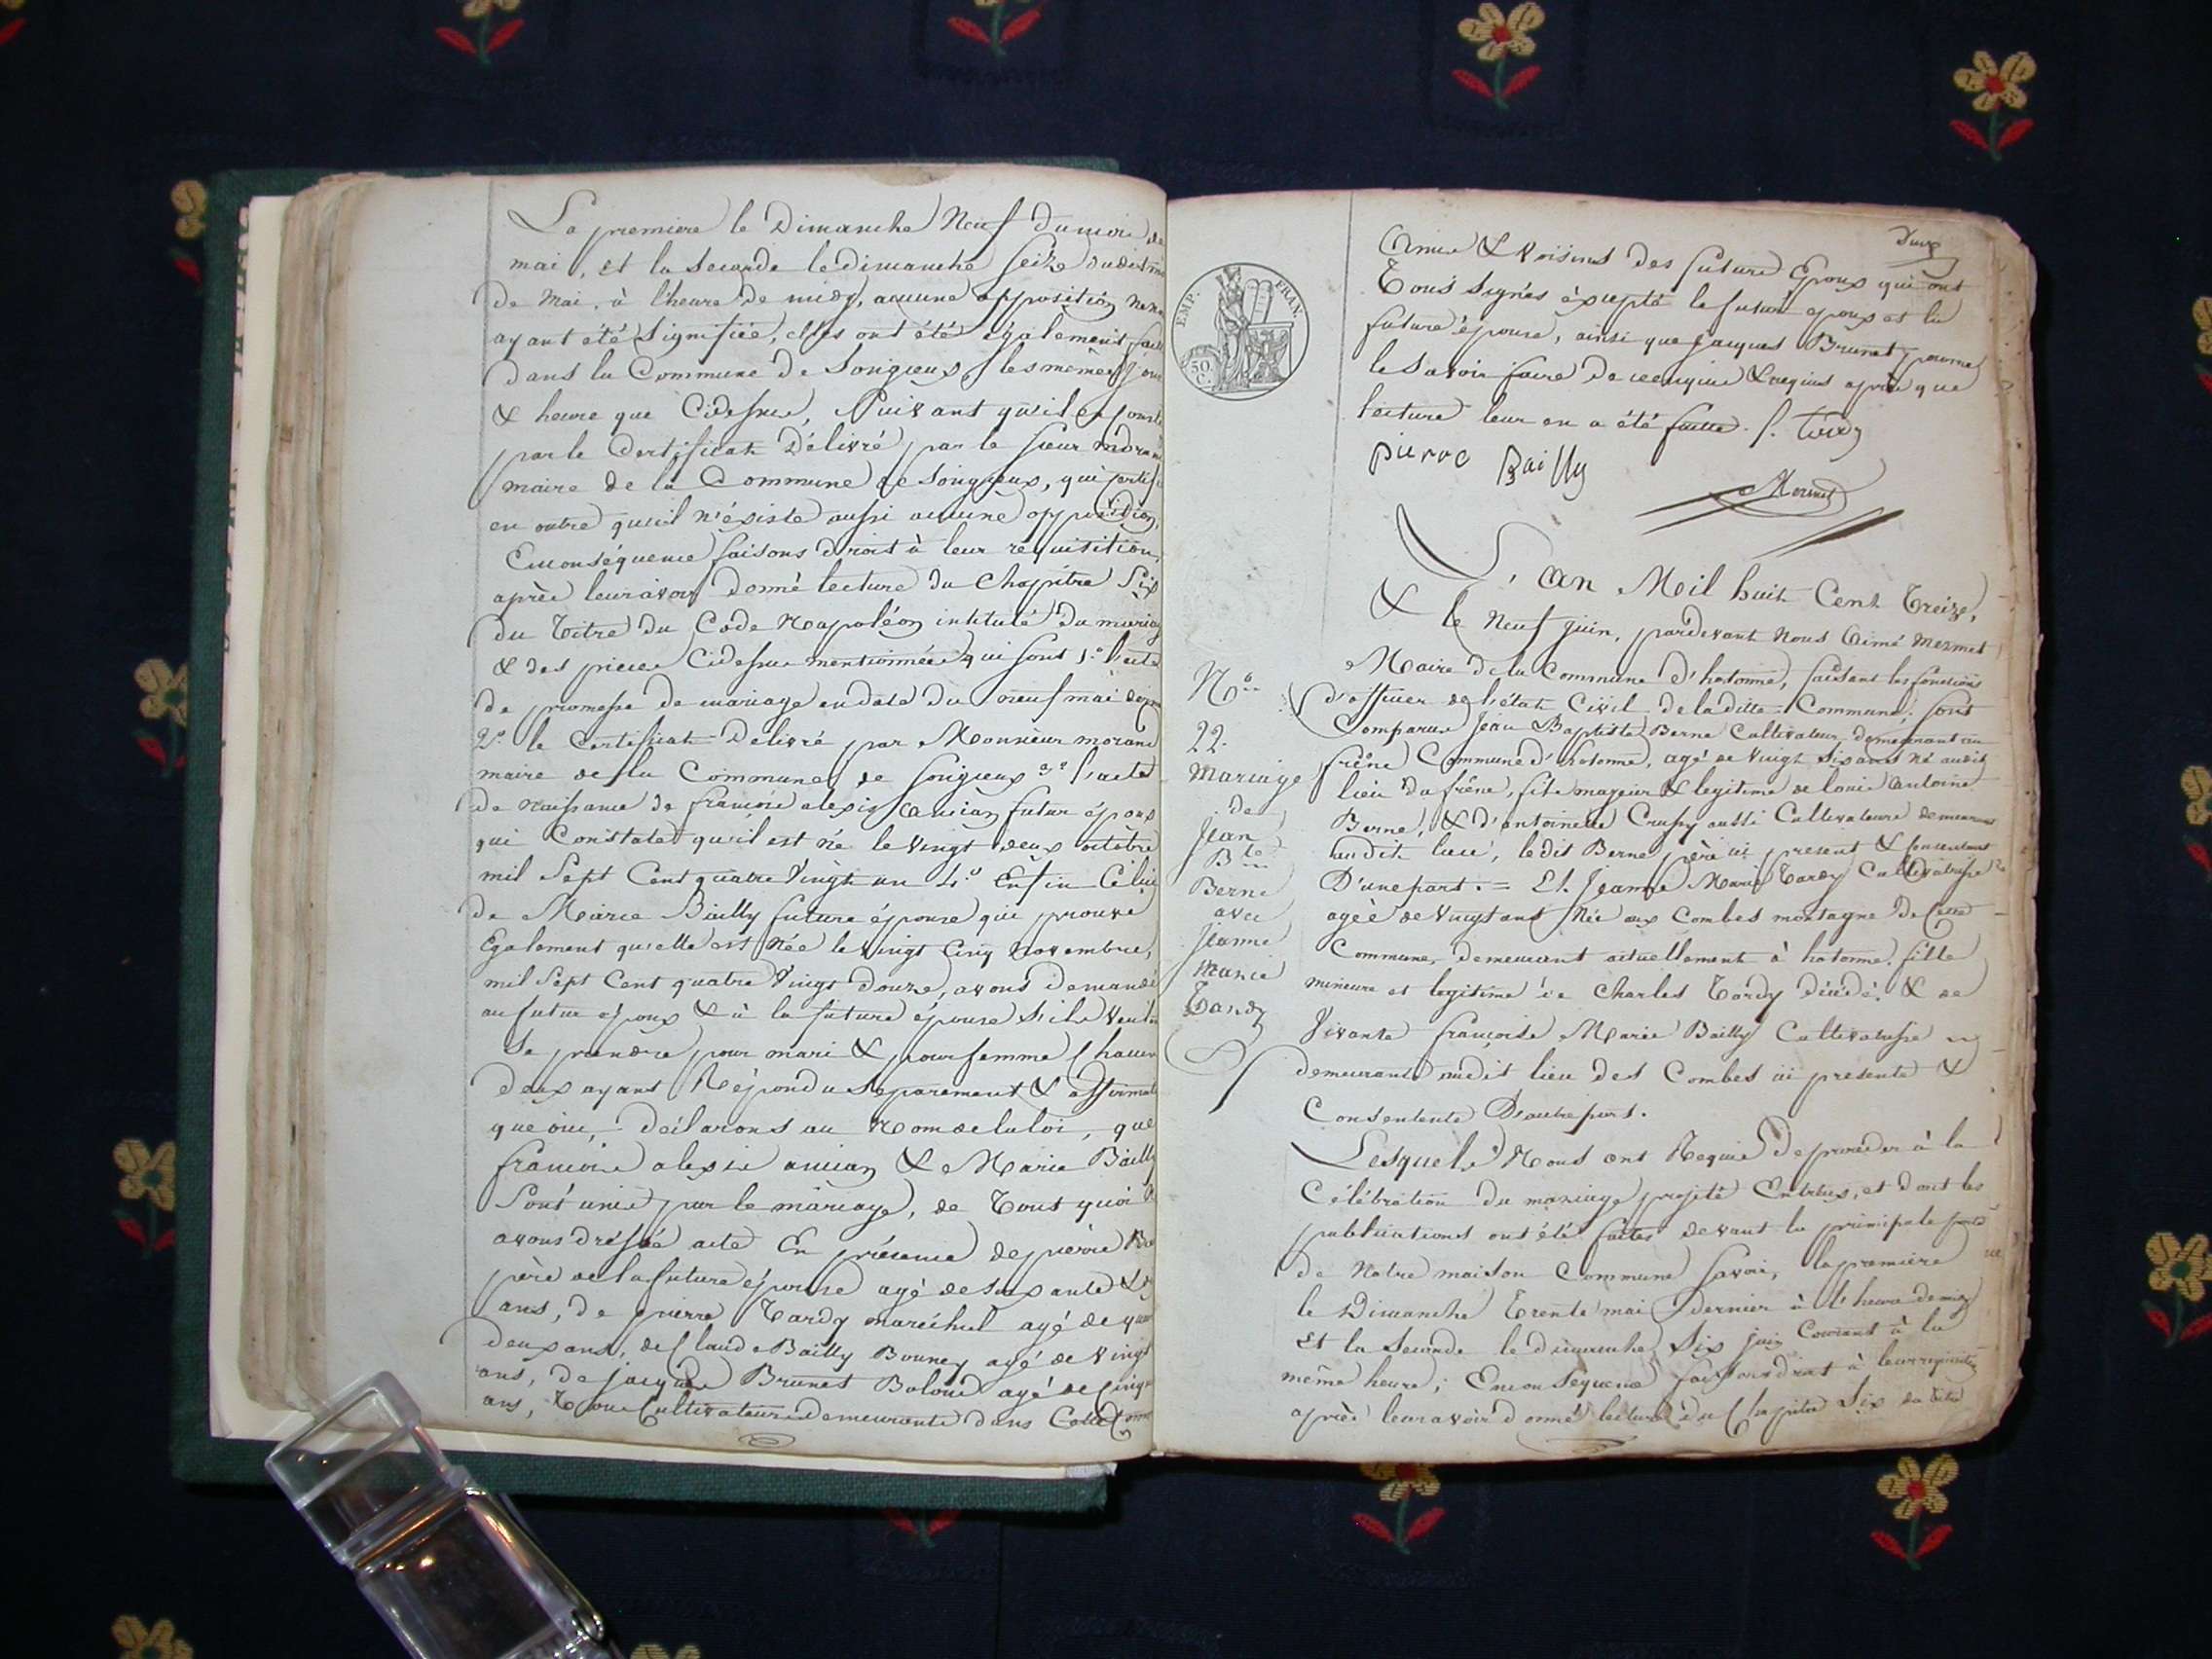 La premiere le Dimanche Neuf du mois de
mai, et la seconde le dimanche seize dudit
de Mai, à l'heure de midy, aucune opposition
ayant été Signifiée, elles ont été également
dans la Commune de Songieux, les mêmes jour
& heure que Cidessus, Suivant qu'il en
par le Certificat Délivré par le sieur
maire de la Commune de Songieux, qui
en outre qu'il n'éxiste aussi aucune opposition,
Enconséquence faisons droit à leur réquisition,
après leur avoir donné lecture du Chapitre Six
du Titre du Code Napoléon intitulé du mariage
& des pieces Cidessus mentionnées qui sont 1.° l'acte
de promesse de mariage en date du neuf mai
2.° le Certificat Delivré par Monsieur morand
maire de la Commune de Songieux 3.° l'acte
de Naissance de françois alexis ancian futur époux
qui Constate qu'il est né le vingt deux octobre
mil Sept Cent quatre Vingt un 4.° Enfin Celui
de Marie Bailly future épouse qui prouve
Egalement qu'elle est Née le vingt Cinq Novembre,
mil Sept Cent quatre Vingt douze, avons demandé
au futur époux & à la future épouse s'ils veulent
se prendre pour mari & pour femme Chacun
deux ayant Répondu Separement & affirmati
que oui, déclarons au Nom de la loi, que
francois alexis ancian & Marie Bailly
Sont unis par le mariage, de Tout quoi
avons dréssé acte En présence de pierre
père de la future épouse agé de soixante &
ans, de pierre Tardy maréchal agé de
deux ans, de Claude Bailly Bouney agé de vingt
ans, de jacques Brunet agé de
ans, Tous Cultivateurs demeurants dans Cette
Amis & Voisins des futurs Epoux qui ont
Tous signés éxcepté le futur epoux et la
future épouse, ainsi que jacques Brunet pour ne
le Savoir faire de ce enquis & requis après que
lecture leur en a été faitte.
pierre Bailly
EMP. FRAN.
50 C.
L'an Mil huit Cent Treize,
& le Neuf juin, pardevant Nous Aimé Mermet
Maire de la Commune d'hotonne, faisant les fonctions
d'officier de l'état Civil de la ditte Commune; sont
Comparus Jean Baptiste Berne Cultivateur demeurant au
frêne Commune d'hotonne, agé de Vingt Six ans Né audit
lieu du frêne, fils majeur & legitime de louis antoine
Berne, & d'antoinette aussi Cultivateurs demeurant
audit lieu, ledit Berne père ici present & consentant
D'une part. = Et Jeanne Marie Tardy Cultivatrisse
agée de vingt ans Née aux Combes montagne de Cette
Commune, demeurant actuellement à hotonne, fille
mineure et legitime de Charles Tardy décédé, & de
Vivante françoise Marie Bailly Cultivatrisse
demeurant audit lieu des Combes ici presente &
Consentente D'autre part.
Lesquels Nous ont Requis De procéder à la
Célébration du mariage projeté Entr'eux, et dont les
publications ont été faites devant la principale porte
de Notre maison Commune Savoir, la première
le Dimanche Trente mai Dernier à l'heure de midy
Et la Seconde le dimanche Six juin Courant à la
même heure; Enconsequence faisons droit à leur requisition
après leur avoir donné lecture du Chapitre Six du titre
N.°
22.
Mariage
de
Jean
B.te
Berne
avec
Jeanne
Marie
Tardy